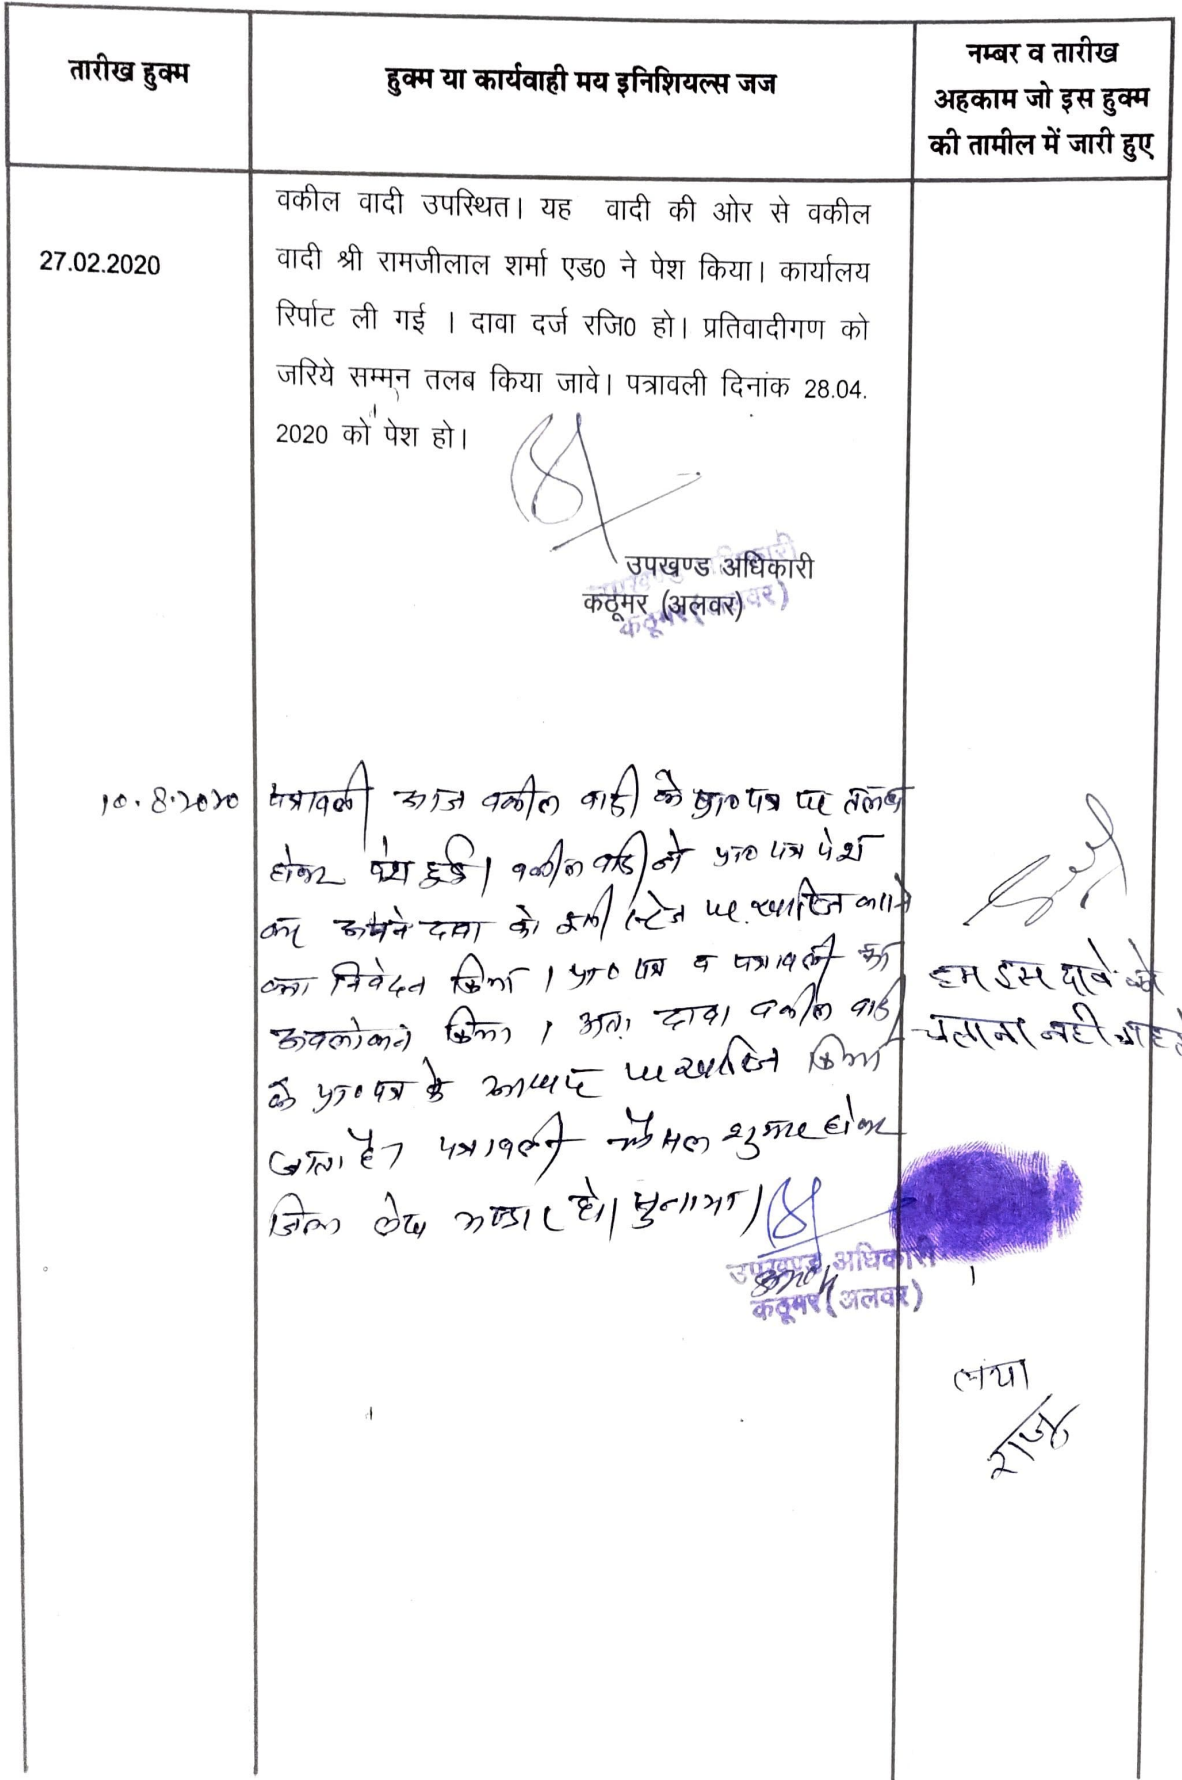 तारीख हुक्म
हुक्म या कार्यवाही मय इनिशियल्स जज
नम्बर व तारीख
अहकाम जो इस हुक्म
की तामील में जारी हुए
27.02.2020
वकील वादी उपस्थित। यह वादी की ओर से वकील
वादी श्री रामजीलाल शर्मा एड0 ने पेश किया। कार्यालय
रिर्पाट ली गई । दावा दर्ज रजि0 हो। प्रतिवादीगण को
जरिये सम्मन तलब किया जावे। पत्रावली दिनांक 28.04.
2020 को पेश हो।
उपखण्ड अधिकारी
कठूमर (अलवर)
10.8.2020
पत्रावली आज वकील वादी के प्रा० पत्र पर तलब
होकर पेश हुई। वकील वादी ने प्रा० पत्र पेश
कर अपने दावा को इसी स्टेज पर खारिज कराने
का निवेदन किया। प्रा० पत्र व पत्रावली का
अवलोकन किया। अतः दावा वकील वादी
के प्रा० पत्र के आधार पर खारिज किया
जाता है। पत्रावली फैसल शुमार होकर
जिला लेख भण्डार हो। सुनाया।
उपखण्ड अधिकारी
कठूमर (अलवर)
हम इस दावे को
चलाना नही चाहते
राजू